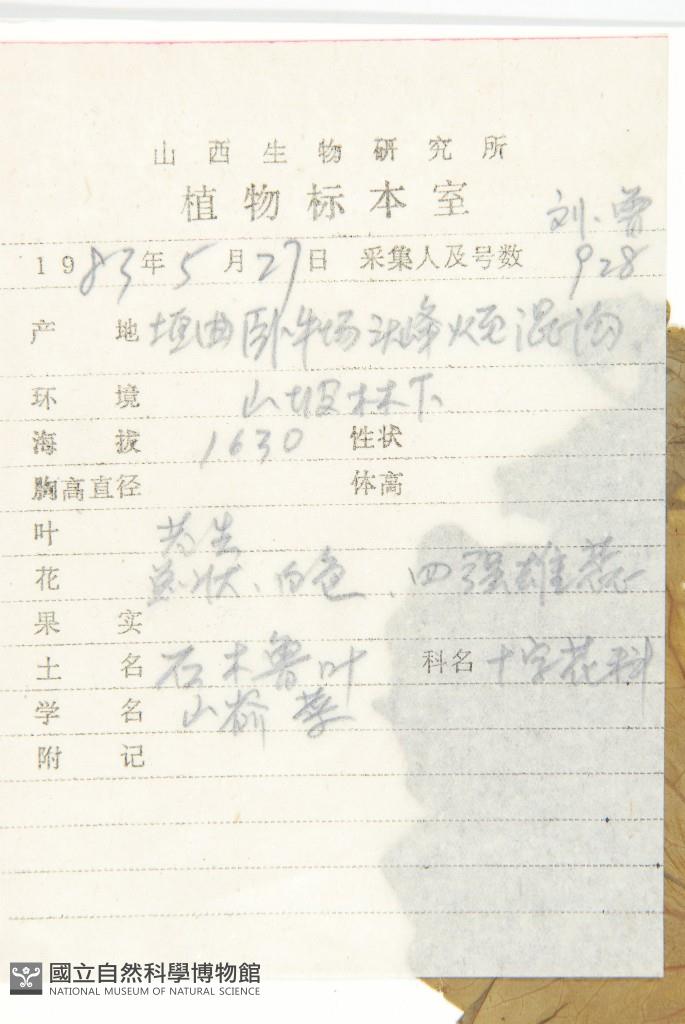 山西生物研究所
植物标本室
刘、曾
1983年5月27日 采集人及号数 928
产地 垣曲卧牛场 混沟
环境 山坡林下
海拔 1630 性状
胸高直径 体高
叶 生
花 状、白色、四强雄蕊
果实
土名 石木鲁叶 科名 十字花科
学名 山嵛菜
附记
國立自然科學博物館
NATIONAL MUSEUM OF NATURAL SCIENCE